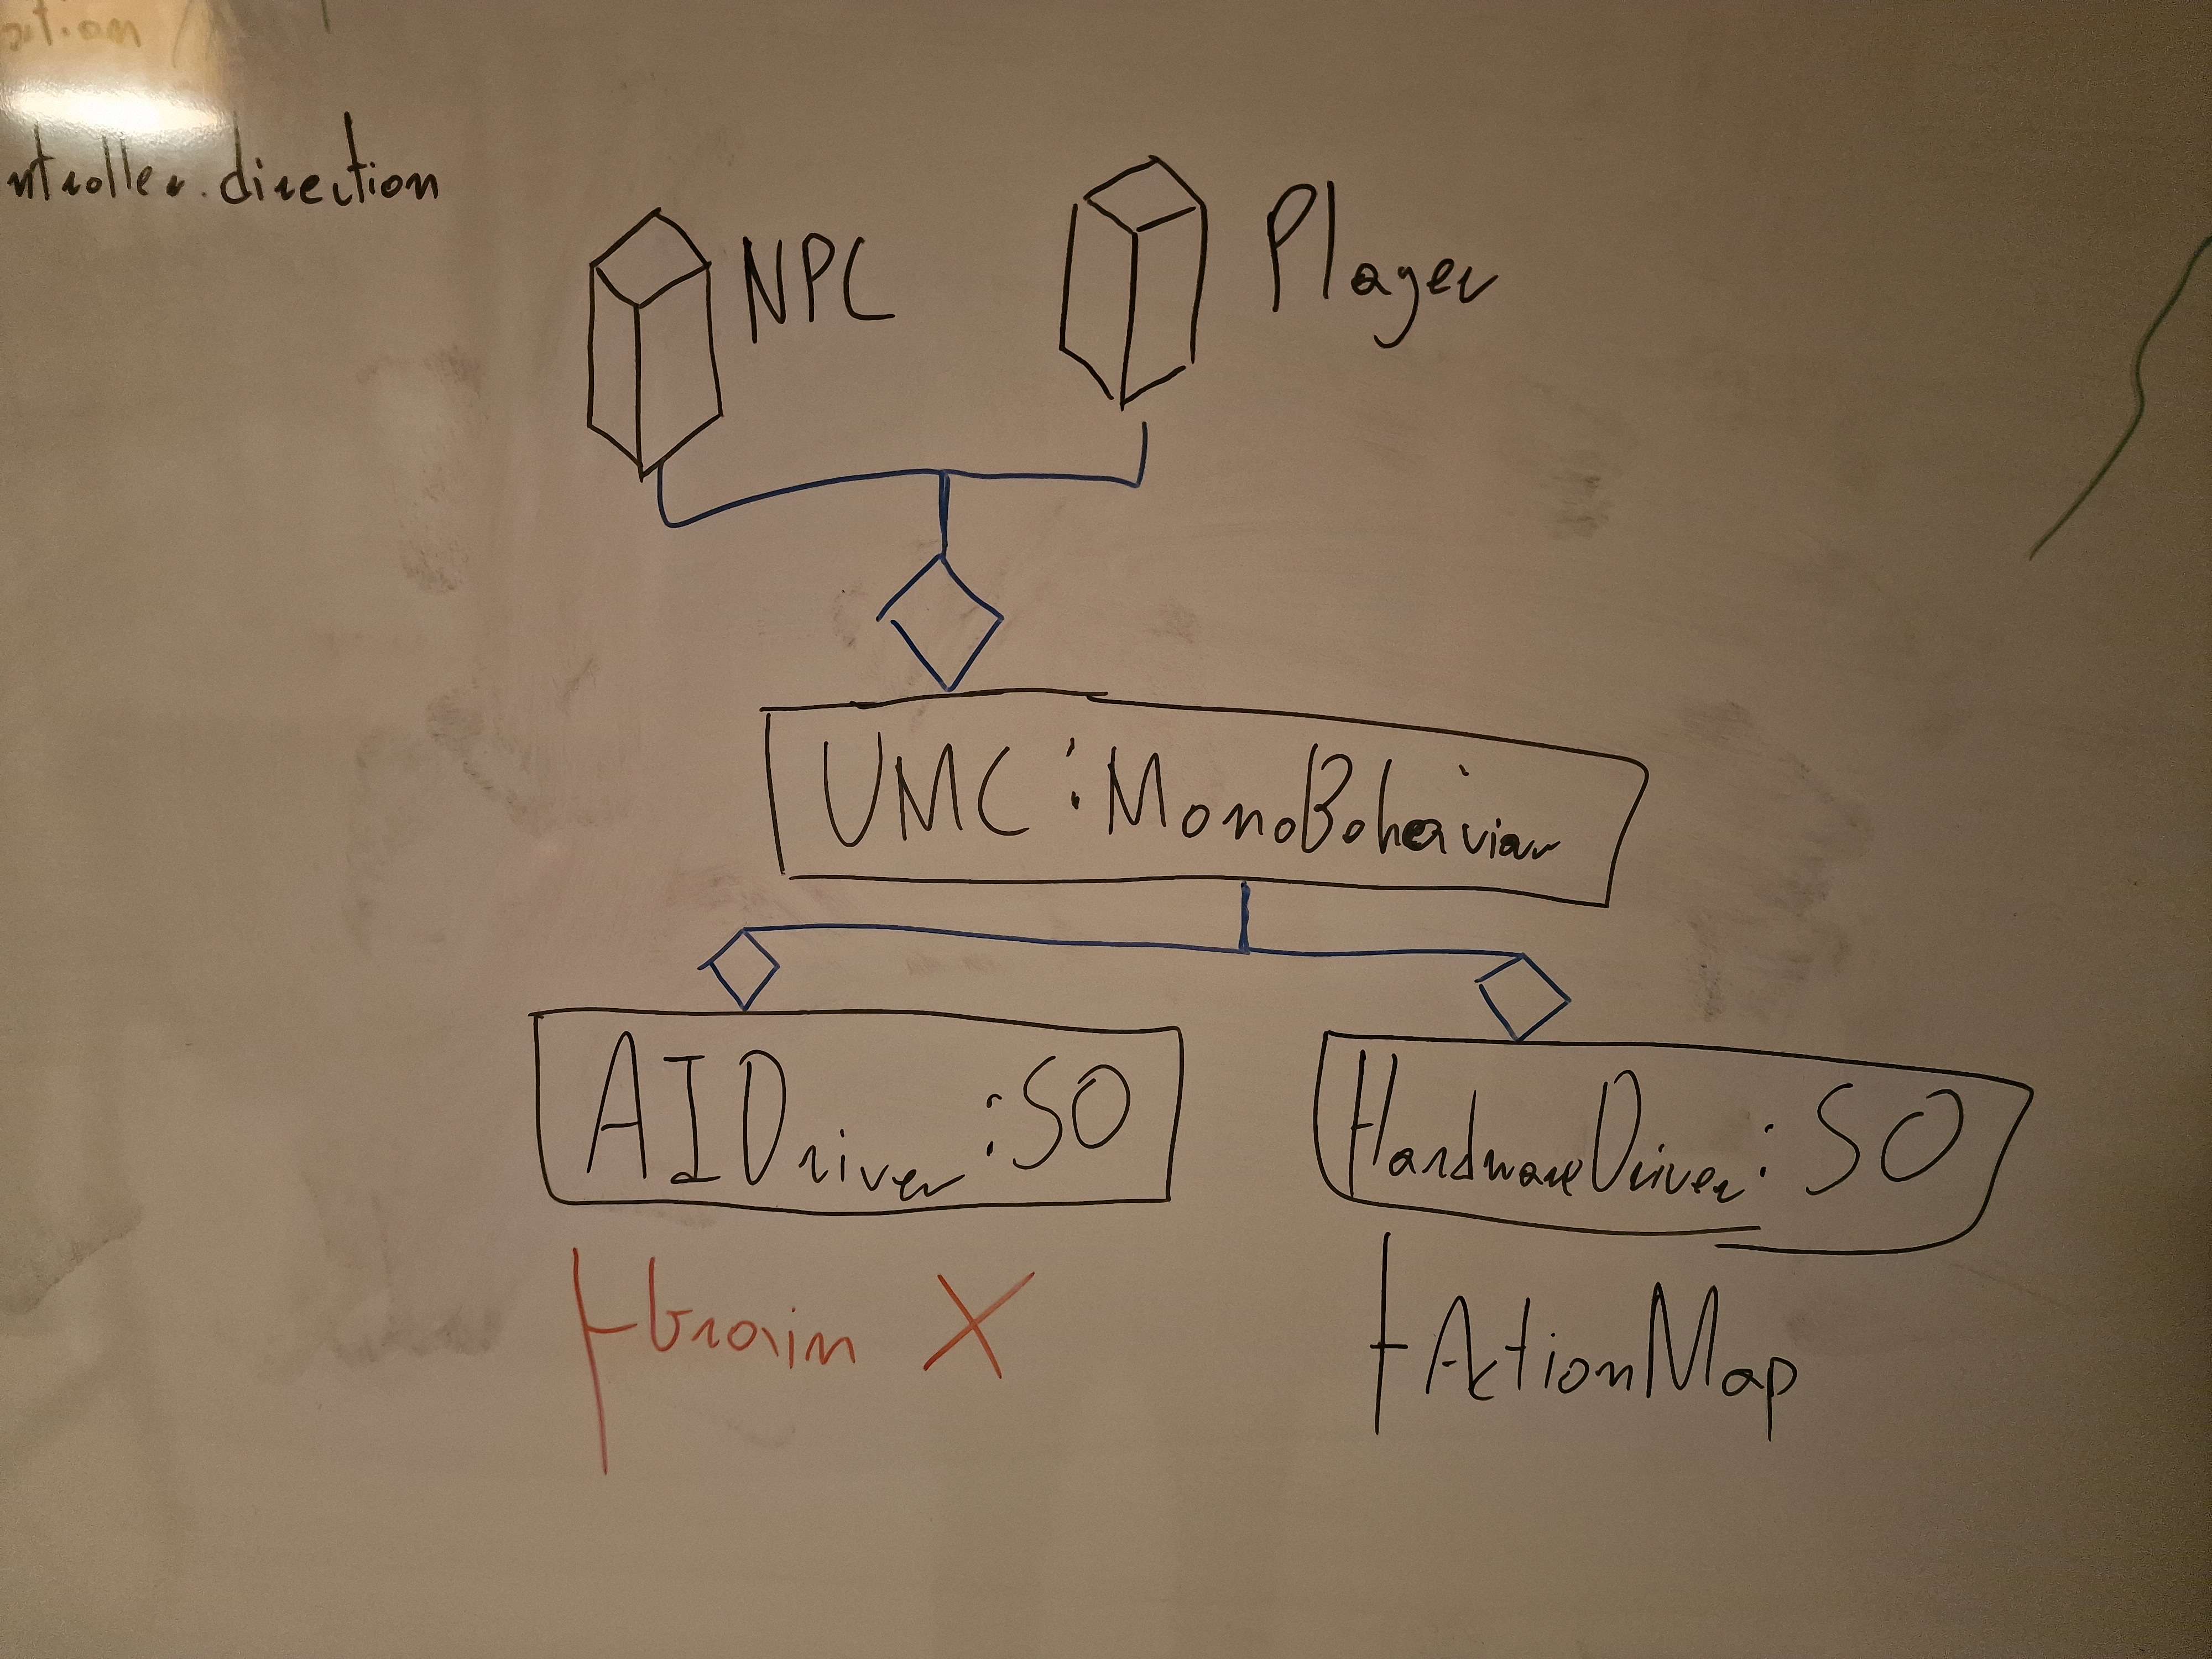 ntroller.direction
NPC
Player
UMC:MonoBehaviour
AIDriver:SO
HardwareDriver:SO
brain X
ActionMap